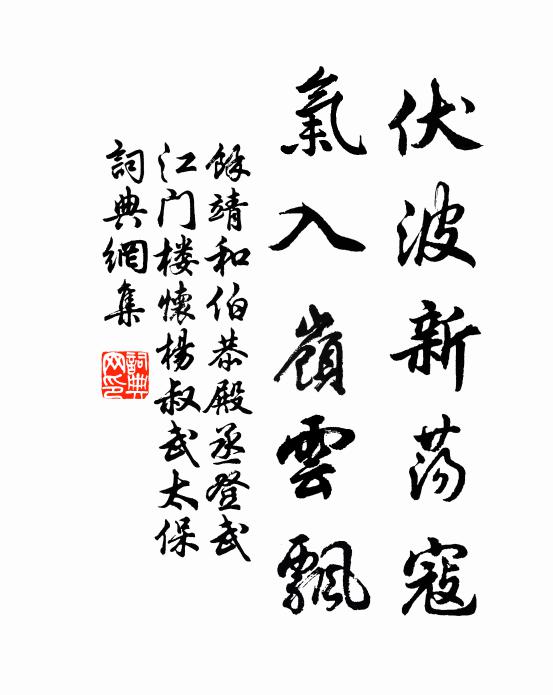 伏波新荡寇
氣入嶺雲飄
餘靖和伯恭殿丞登武
江门楼懷楊叔武太保
詞典網集
詞典
网印